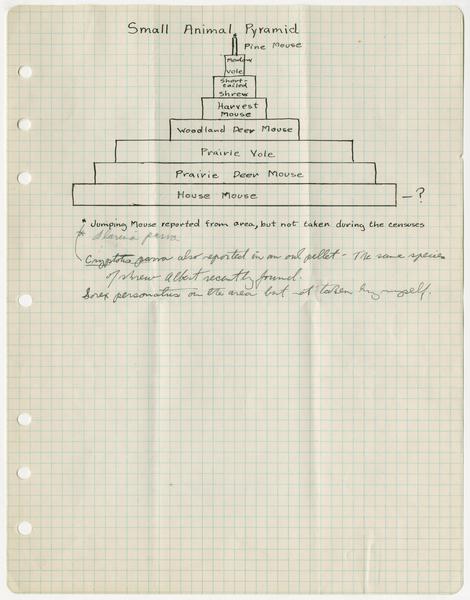 Small Animal Pyramid
Pine Mouse
Meadow
Vole
Short-
tailed
Shrew
Harvest
Mouse
Woodland Deer Mouse
Prairie Vole
Prairie Deer Mouse
House Mouse
—?
* Jumping Mouse reported from area, but not taken during the censuses
* Blarina parva
Cryptotis parva also reported in an owl pellet - The same species
of shrew Albert recently found.
Sorex personatus on the area but not taken by myself.